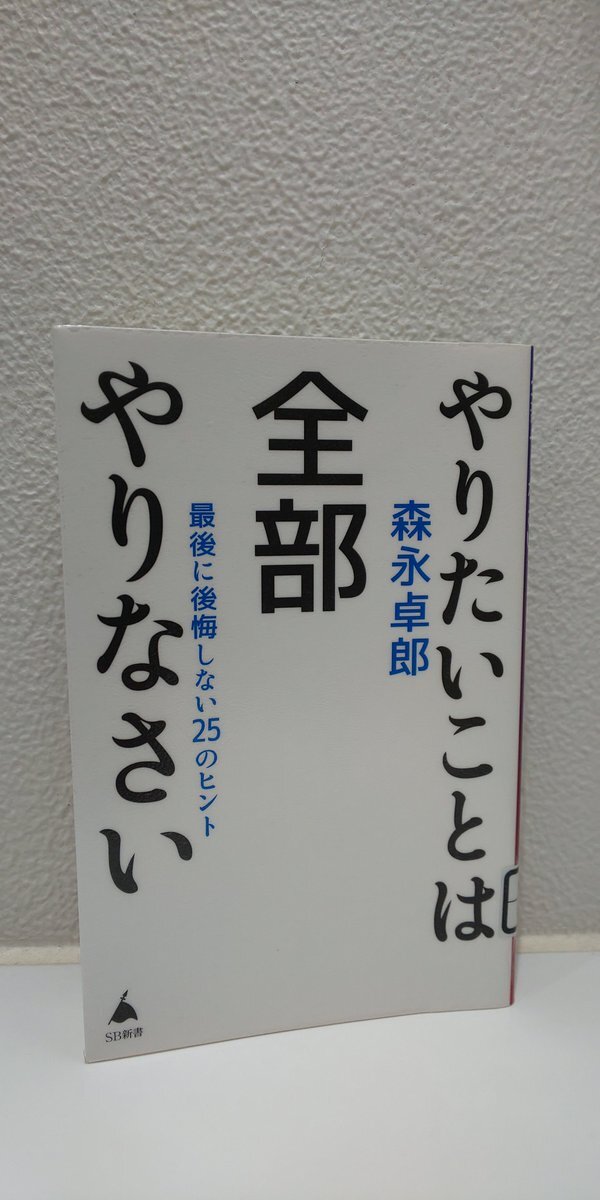 やりたいことは
森永卓郎
全部
最後に後悔しない25のヒント
やりなさい
SB新書